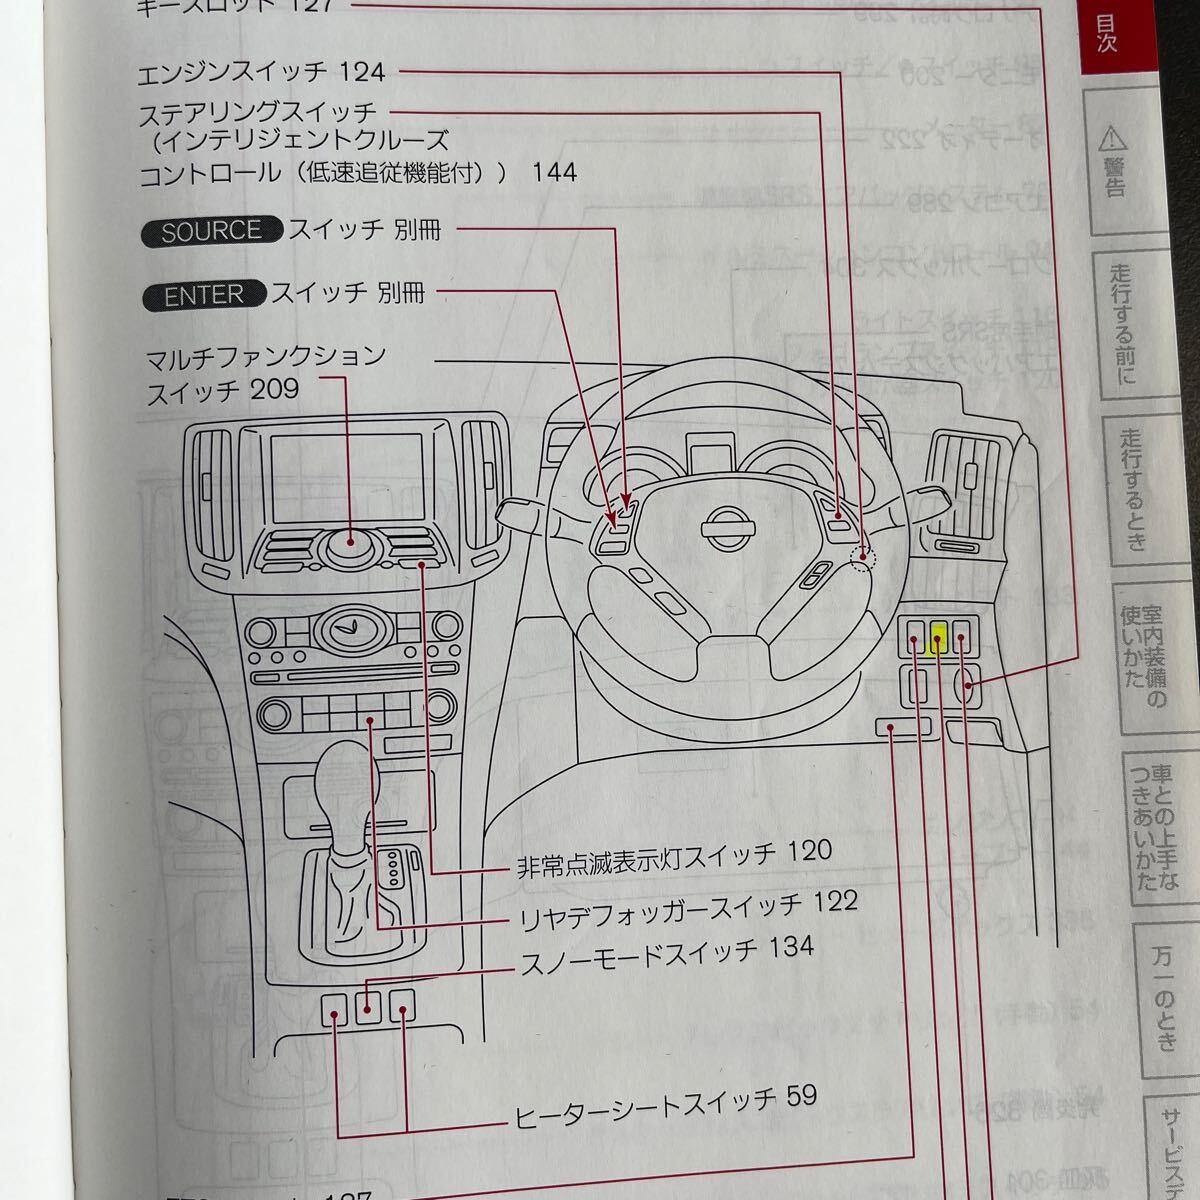 キースロット 127
エンジンスイッチ 124
ステアリングスイッチ
(インテリジェントクルーズ
コントロール(低速追従機能付)) 144
SOURCE スイッチ 別冊
ENTER スイッチ 別冊
マルチファンクション
スイッチ 209
非常点滅表示灯スイッチ 120
リヤデフォッガースイッチ 122
スノーモードスイッチ 134
ヒーターシートスイッチ 59
目次
警告
走行する前に
走行するとき
室内装備の
使いかた
車との上手な
つきあいかた
万一のとき
サービスデ